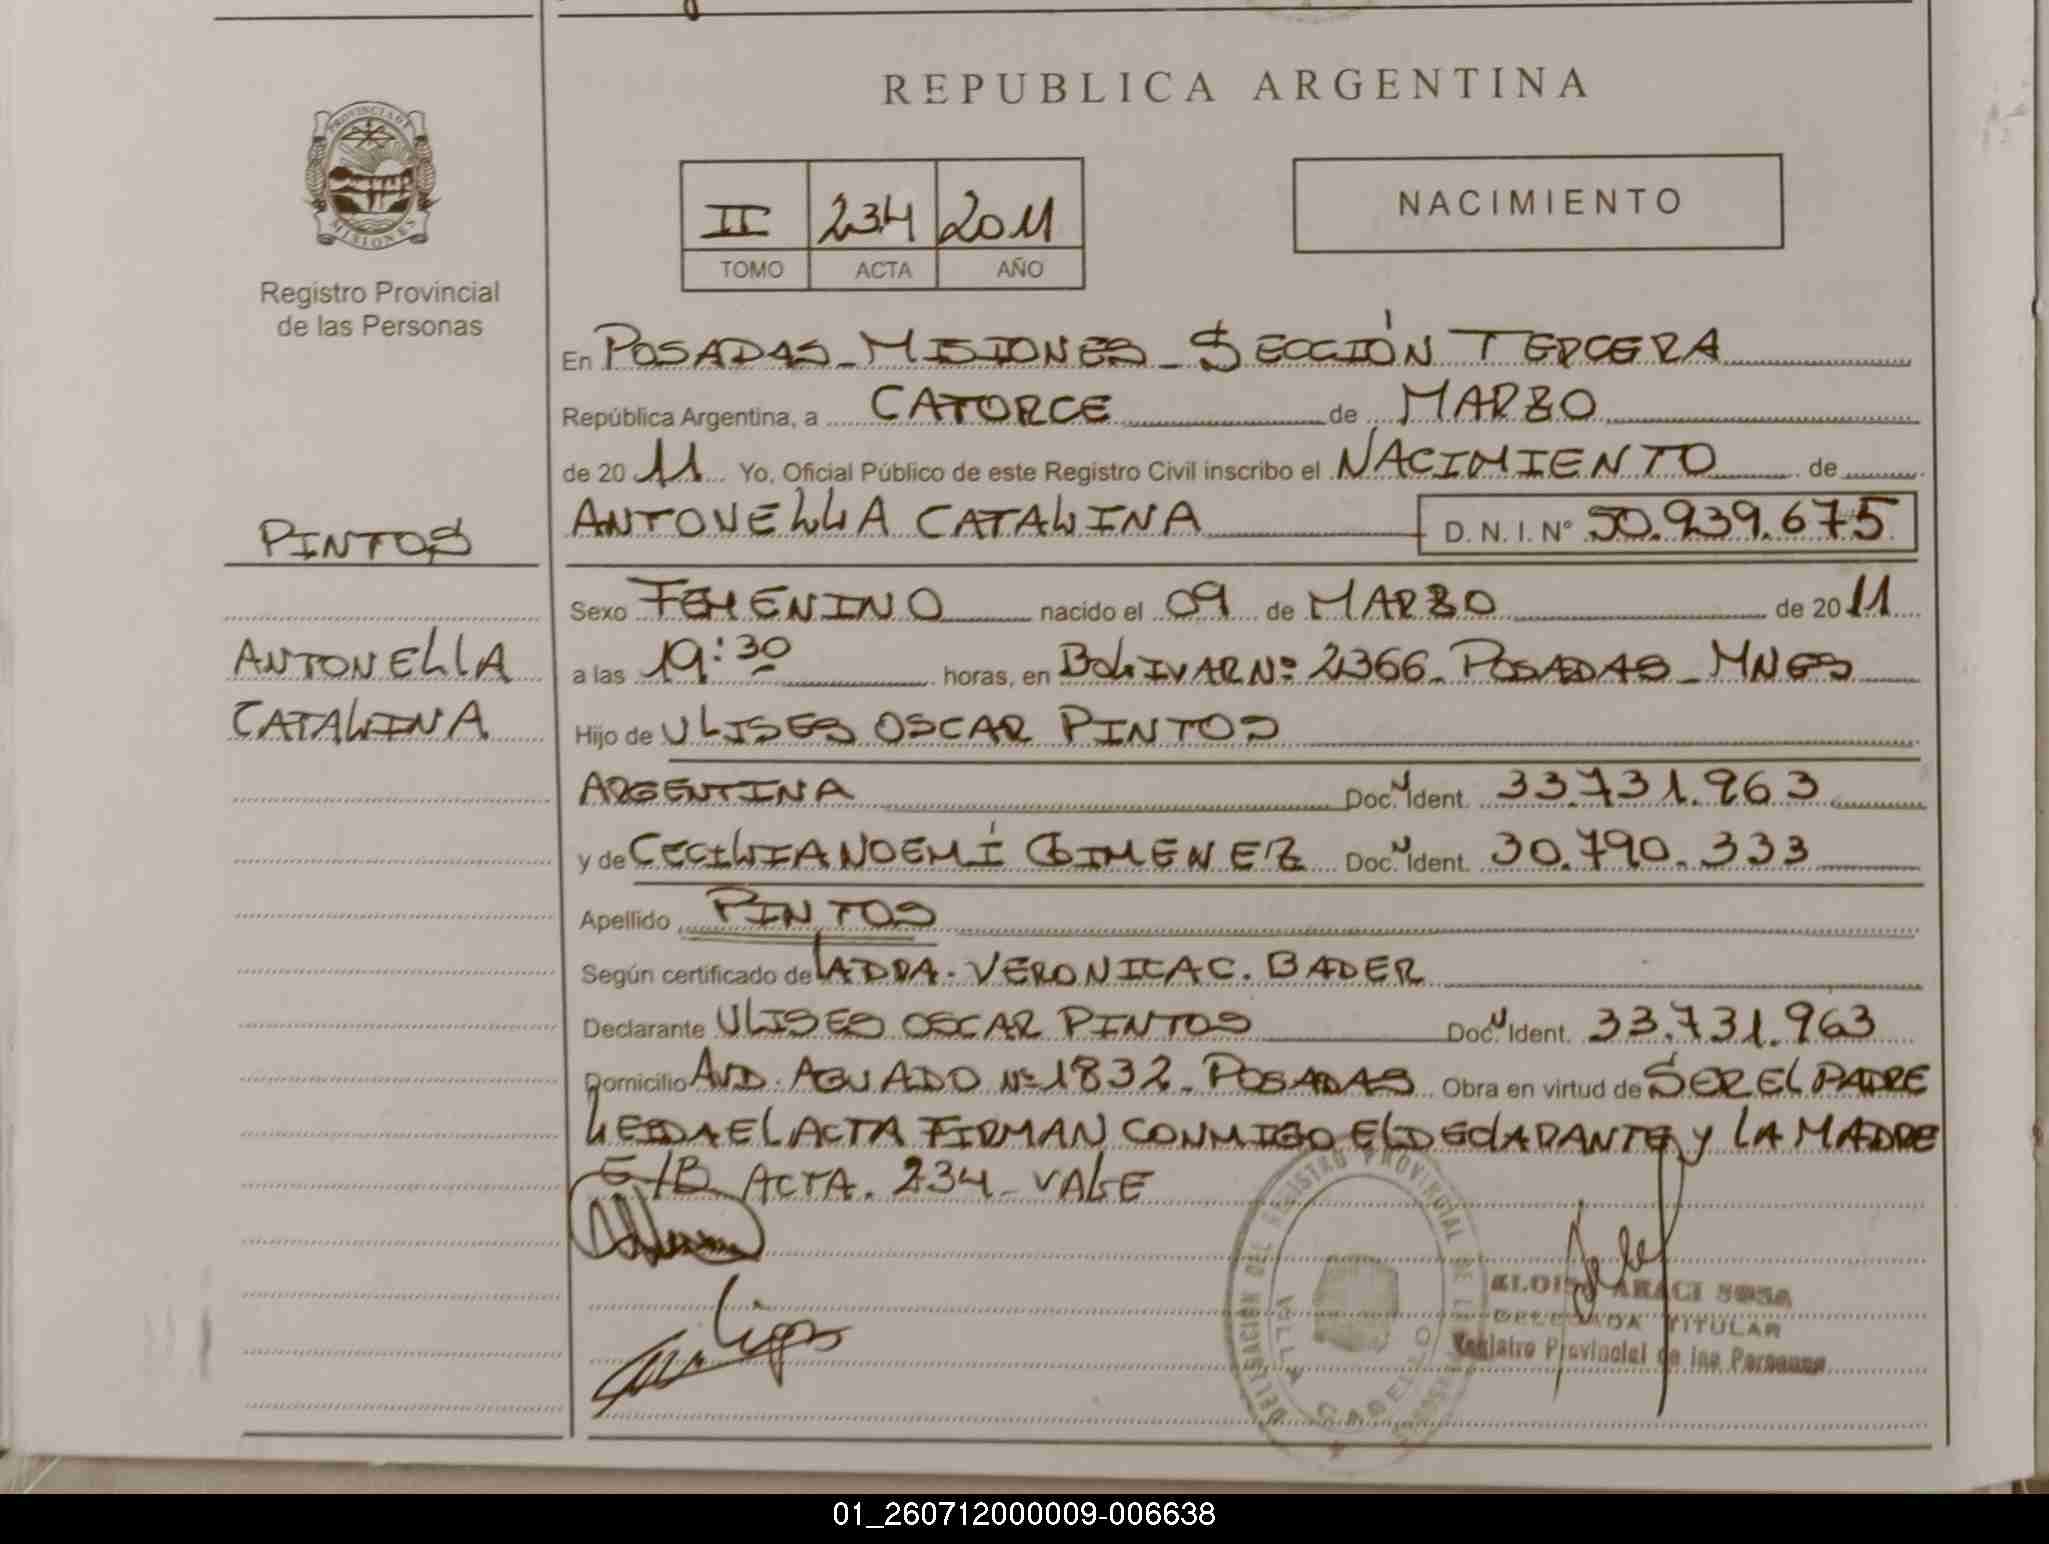 REPUBLICA ARGENTINA
PROVINCIA DE
MISIONES
Registro Provincial
de las Personas
II 234 2011
TOMO ACTA AÑO
NACIMIENTO
En POSADAS - MISIONES - SECCIÓN TERCERA
República Argentina, a CATORCE de MARZO
de 2011 Yo, Oficial Público de este Registro Civil inscribo el NACIMIENTO de
PINTOS
ANTONELLA CATALINA D. N. I. Nº 50.939.675
Sexo FEMENINO nacido el 09 de MARZO de 2011
ANTONELLA
a las 19:30 horas, en BOLIVAR Nº 2366 - POSADAS - MNES
CATALINA
Hijo de ULISES OSCAR PINTOS
ARGENTINA Doc. Ident. 33.731.963
y de CECILIA NOEMÍ GIMENEZ Doc. Ident. 30.790.333
Apellido PINTOS
Según certificado de LA DRA. VERONICA C. BADER
Declarante ULISES OSCAR PINTOS Doc. Ident. 33.731.963
Domicilio AVD. AGUADO Nº 1832 - POSADAS Obra en virtud de SER EL PADRE
LEIDA EL ACTA FIRMAN CONMIGO EL DECLARANTE Y LA MADRE
E/B ACTA. 234 - VALE
DELEGACION DEL REGISTRO PROVINCIAL DE
ARACI SOSA
DELEGADA TITULAR
Registro Provincial de las Personas
01_260712000009-006638